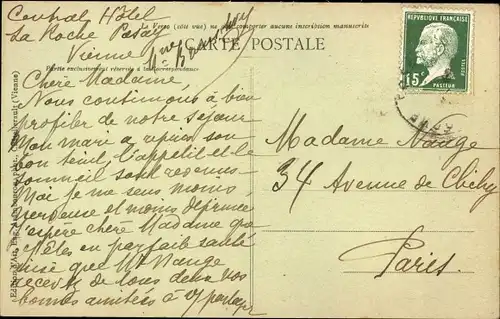 Central Hôtel
La Roche Posay
Vienne
Le Verso (côté vue) ne doit comporter aucune inscription manuscrite
CARTE POSTALE
Partie exclusivement réservée à la correspondance
REPUBLIQUE FRANÇAISE
15c
POSTES
PASTEUR
Chère Madame,
Nous continuons à bien
profiter de notre séjour
Mon mari a repris son
bon teint, l'appétit et le
sommeil sont revenus
Moi je me sens moins
nerveuse et moins déprimée
J'espère chère Madame que
êtes en parfaite santé
ainsi que Mr Nauge
recevez de tous deux nos
bonnes amitiés à partager
Madame Nauge
34 Avenue de Clichy
Paris